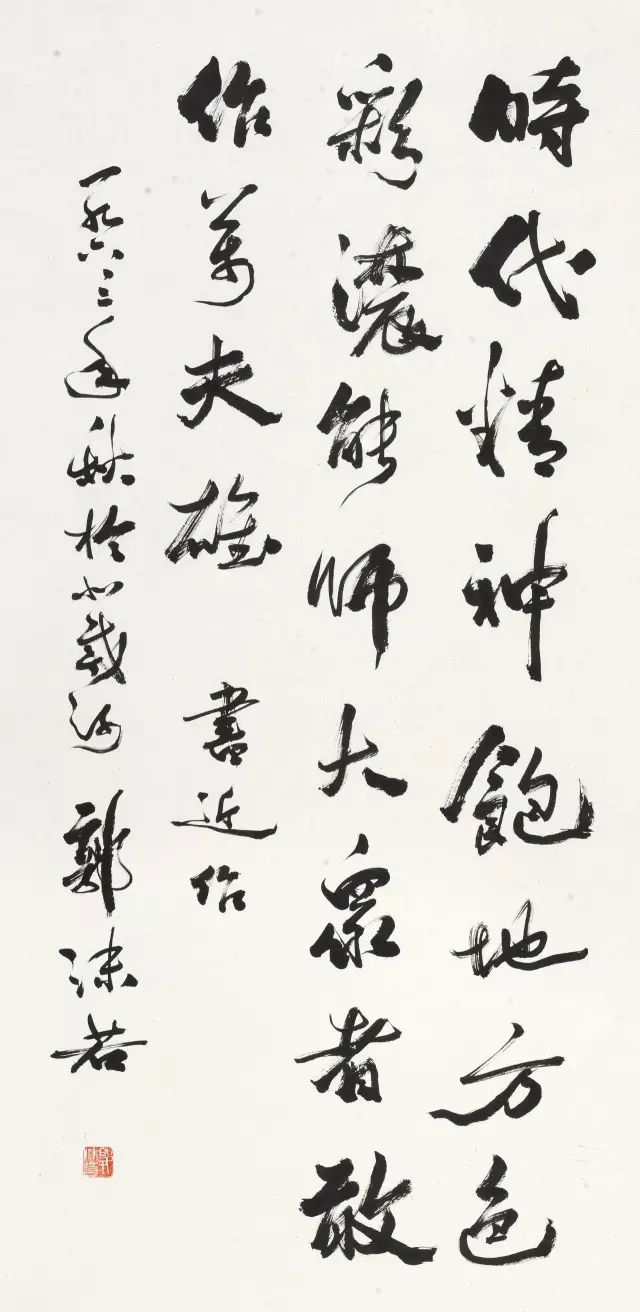 時代精神飽地方色
彩濃能師大眾者敢
作萬夫雄 書近作
一九六三年秋於北戴河 郭沫若